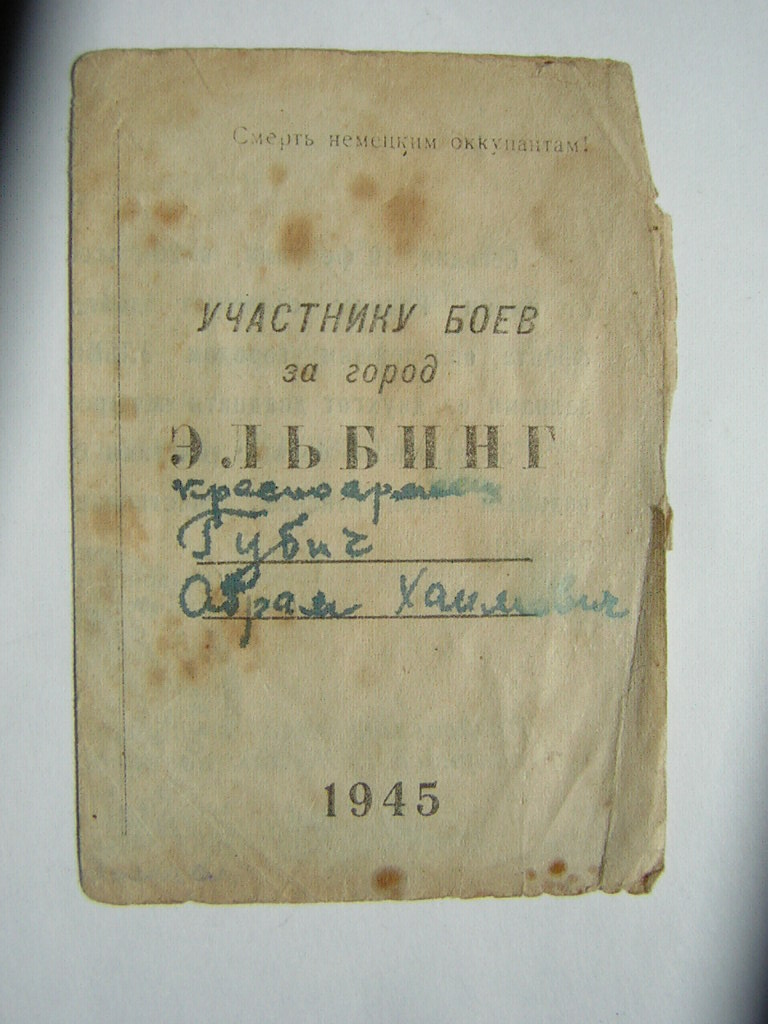 Смерть немецким оккупантам!
УЧАСТНИКУ БОЕВ
за город
ЭЛЬБИНГ
красноармеец
Губич
Абрам Хаимович
1945